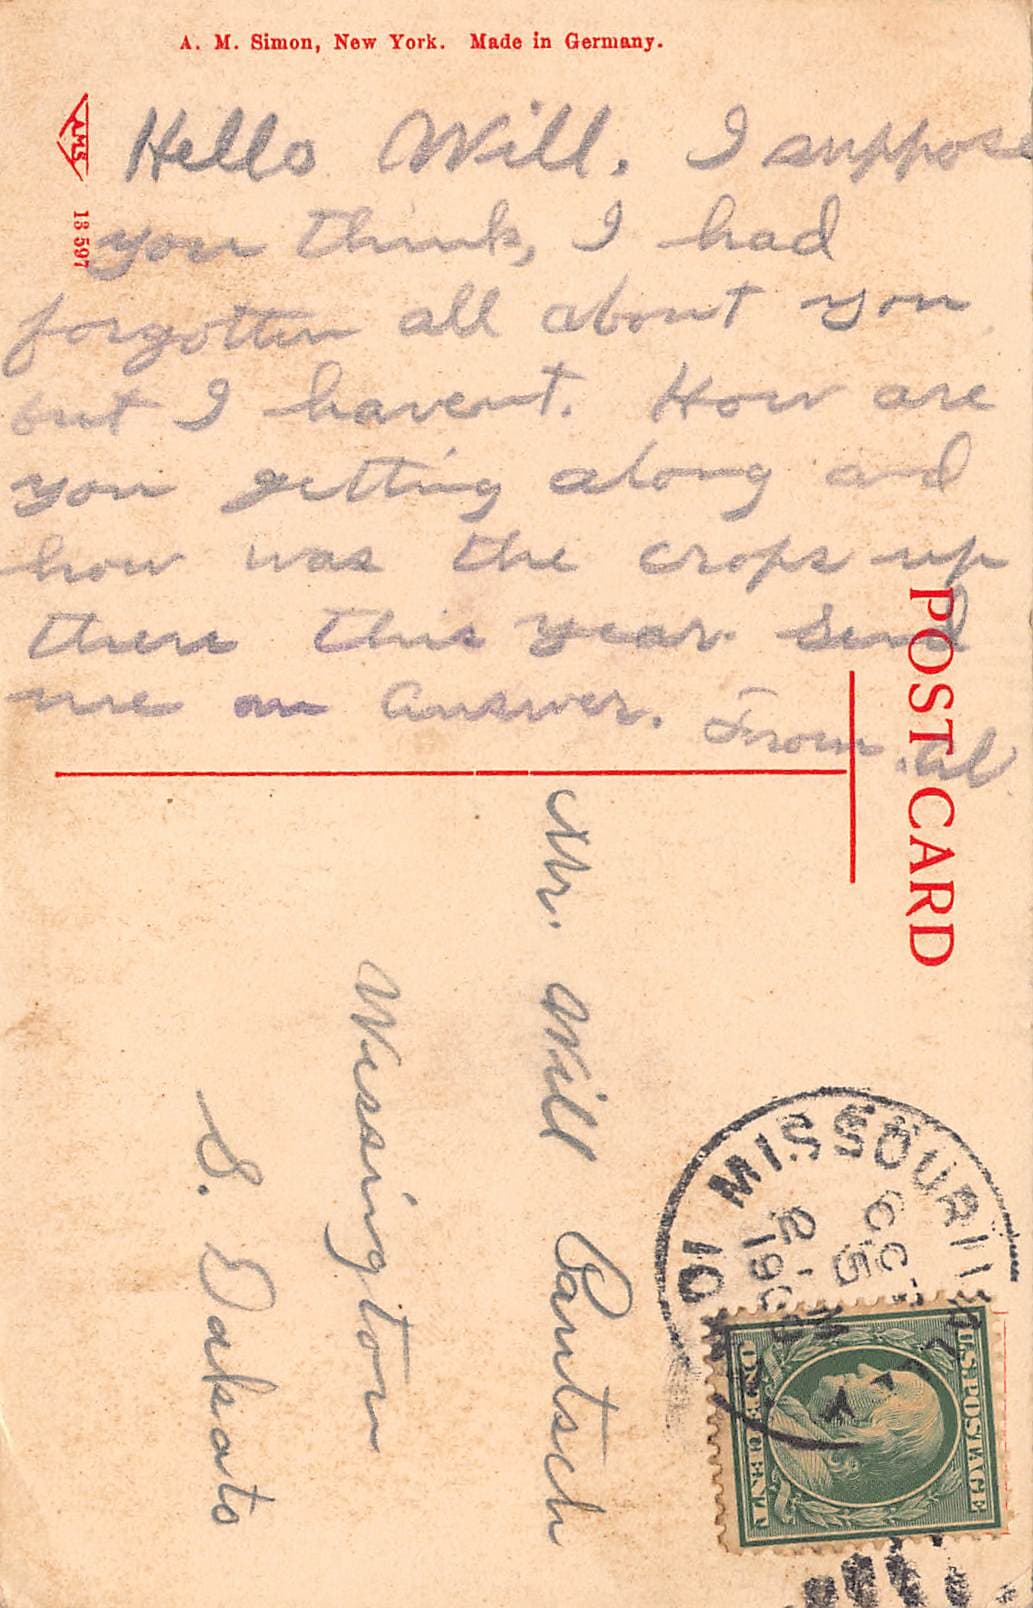 A. M. Simon, New York. Made in Germany.
AMS
13597
Hello Will. I suppose
you think, I had
forgotten all about you
but I havent. How are
you getting along and
how was the crops up
there this year. Send
me an answer. From Al
POST CARD
Mr. Will Pantsch
Wessington
S. Dakato
MISSOURI
OCT
5
1909
IOWA
U.S. POSTAGE
ONE CENT